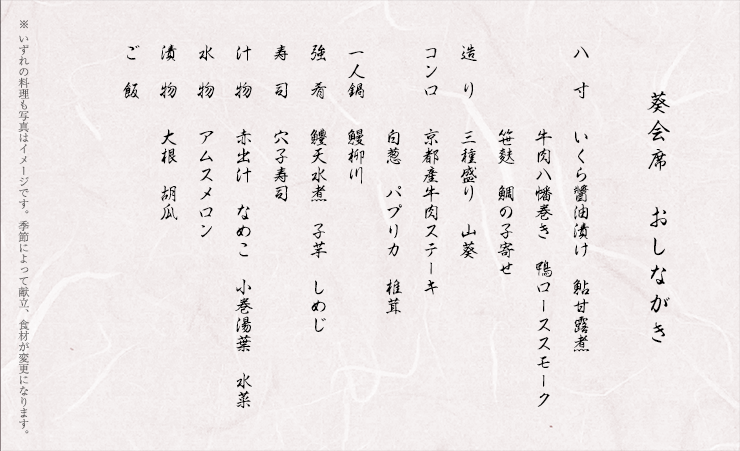 葵会席　おしながき
八寸　いくら醤油漬け　鮎甘露煮
牛肉八幡巻き　鴨ローススモーク
笹麩　鯛の子寄せ
造り　三種盛り　山葵
コンロ　京都産牛肉ステーキ
白葱　パプリカ　椎茸
一人鍋　鰻柳川
強肴　鰻天水煮　子芋　しめじ
寿司　穴子寿司
汁物　赤出汁　なめこ　小巻湯葉　水菜
水物　アムスメロン
漬物　大根　胡瓜
ご飯
※いずれの料理も写真はイメージです。季節によって献立、食材が変更になります。